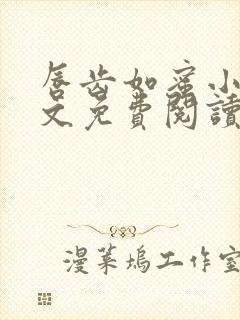 唇齿如蜜小
文免費閱讀
漫葉塢工作室